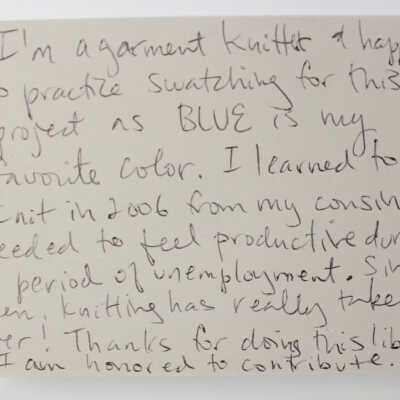 I'm a garment knitter & happ
o practice swatching for this
project as BLUE is my
favorite color. I learned to
knit in 2006 from my cousin
eeded to feel productive dur
period of unemployment. Sin
en, knitting has really take
er! Thanks for doing this lib
I am honored to contribute.